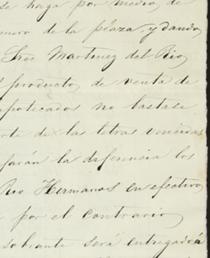 se haga por medio de
de la plaza, y dando
Sres Martinez del Rio
producto de venta de
hipotecados no bastase
de las letras vencidas
la diferencia los
Rio Hermanos en efectivo,
por el contrario
sobrante será entregado